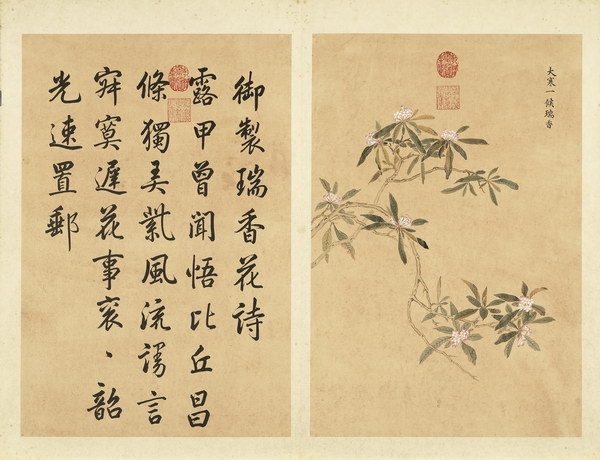 大寒一候瑞香
御製瑞香花詩
露甲曾聞悟比丘昌
條獨美紫風流謾言
寂寞遲花事衮、韶
光速置郵